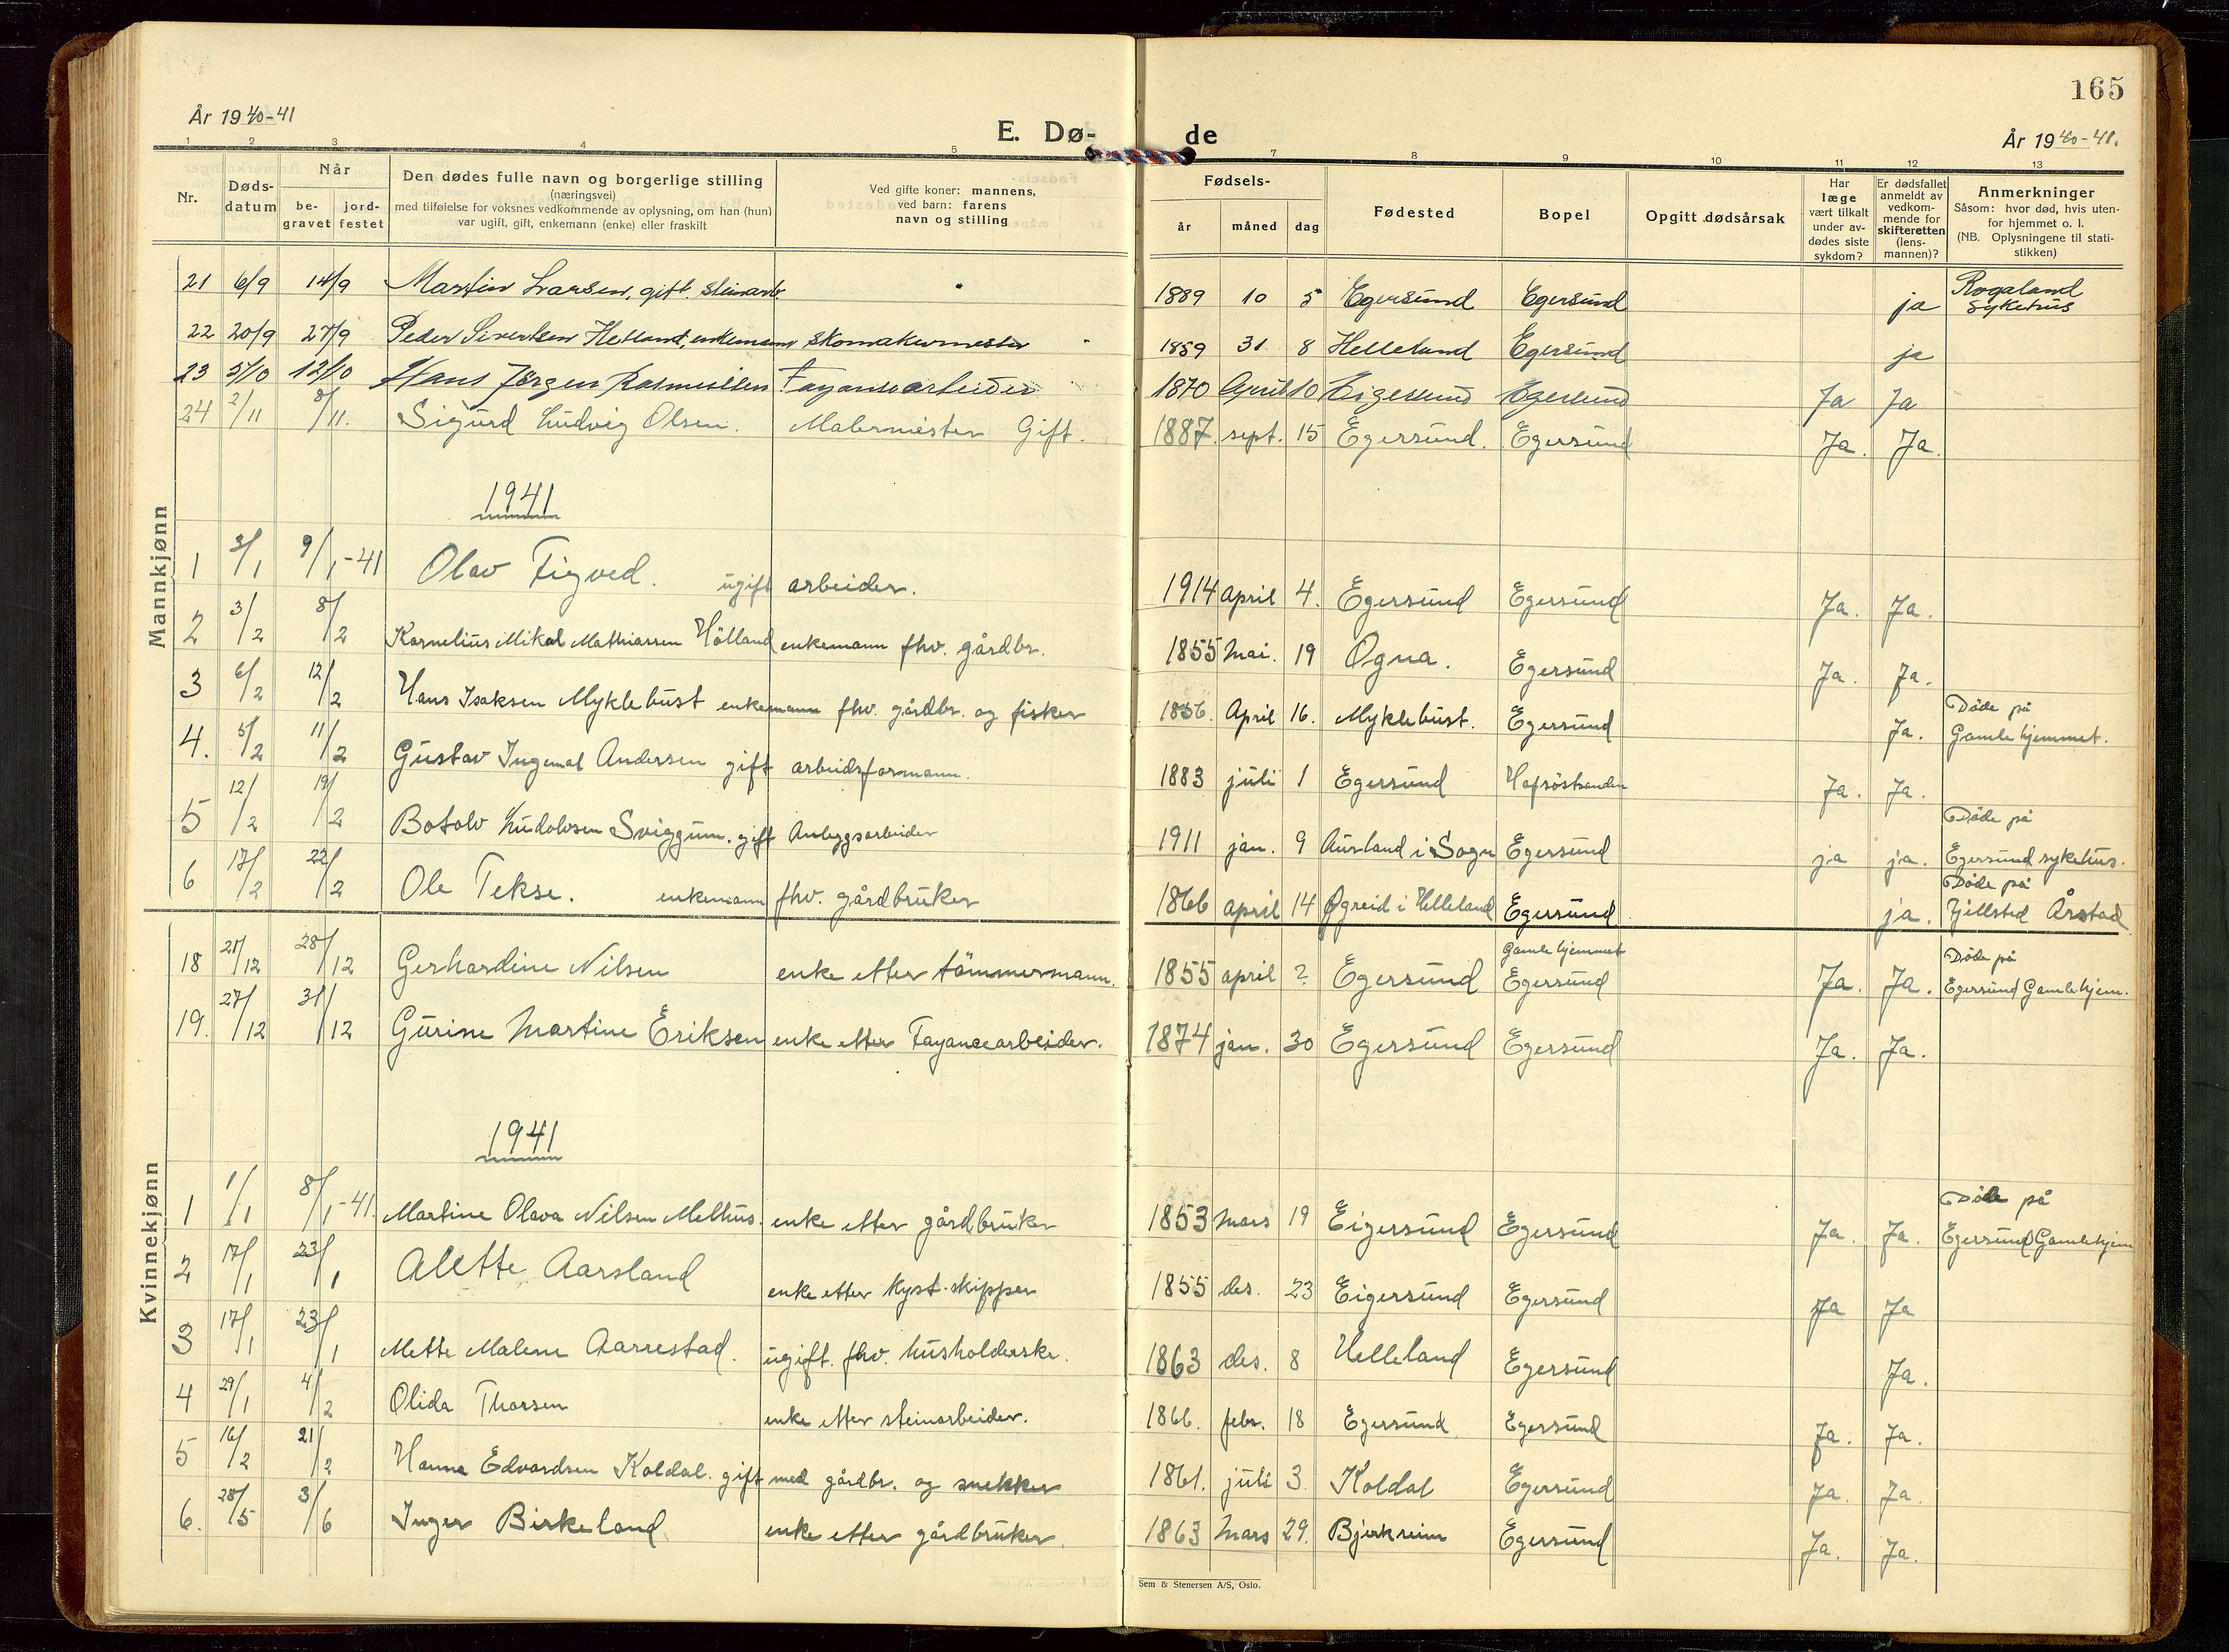 165
År 1940-41
E. Dø- de
År 1940-41.
1 2 3 4 5 7 8 9 10 11 12 13
Nr.
Døds-
datum
Når
be-
gravet
jord-
festet
Den dødes fulle navn og borgerlige stilling
(næringsvei)
med tilføielse for voksnes vedkommende av oplysning, om han (hun)
var ugift, gift, enkemann (enke) eller fraskilt
Ved gifte koner: mannens,
ved barn: farens
navn og stilling
Fødsels-
år måned dag
Fødested
Bopel
Opgitt dødsårsak
Har
læge
vært tilkalt
under av-
dødes siste
sykdom?
Er dødsfallet
anmeldt av
vedkom-
mende for
skifteretten
(lens-
mannen)?
Anmerkninger
Såsom: hvor død, hvis uten-
for hjemmet o. l.
(NB. Oplysningene til stati-
stikken)
Mannkjønn
21 6/9 14/9 Martin Larsen, gift. steinarb. 1889 10 5 Egersund Egersund ja Rogaland sykehus
22 20/9 27/9 Peder Sivertsen Helland, enkemann skomakermester 1859 31 8 Helleland Egersund ja
23 5/10 12/10 Hans Jörgen Rasmussen Fayansearbeider 1870 April 10 Eigersund Egersund Ja Ja
24 2/11 8/11. Sigurd Ludvig Olsen. Malermester Gift. 1887. sept. 15 Egersund. Egersund Ja. Ja.
1941
1 3/1 9/1-41 Olav Tigved. ugift arbeider. 1914 april 4. Egersund Egersund Ja. Ja.
2 3/2 8/2 Kornelius Mikal Mathiassen Hölland enkemann fhv. gårdbr. 1855 Mai. 19 Ogna. Egersund Ja. Ja.
3 6/2 12/2 Hans Isaksen Myklebust enkemann fhv. gårdbr. og fisker 1856. April 16. Myklebust. Egersund Ja. Döde på Gamlehjemmet.
4. 5/2 11/2 Gustav Ingemal Andersen gift arbeidsformann. 1883 juli 1 Egersund Hafsöstranden Ja. Ja.
5 12/2 19/2 Botolv Ludolvsen Sviggum. gift Anleggsarbeider 1911 jan. 9 Aurland i Sogn Egersund ja ja. Döde på Egersund sykehus.
6 17/2 22/2 Ole Tekse. enkemann fhv. gårdbruker 1866 april 14 Øgreid i Helleland Egersund ja. Döde på fjellsted Årstad
Kvinnekjønn
18 21/12 28/12 Gerhardine Nilsen enke etter tömmermann. 1855 april 2 Egersund Gamlehjemmet Egersund Ja. Ja. Döde på Egersund Gamlehjem.
19. 27/12 31/12 Gurine Martine Eriksen enke etter Fayancearbeider. 1874 jan. 30 Egersund Egersund Ja. Ja.
1941
1 1/1 8/1-41. Martine Olava Nilsen Melhus. enke etter gårdbruker 1853 mars 19 Eigersund Egersund Ja. Ja. Döde på Egersund Gamlehjem
2 17/1 23/1 Alette Aarsland enke etter kyst-skipper 1855 des. 23 Eigersund Egersund Ja Ja
3 17/1 23/1 Mette Malene Aarrestad. ugift. fhv. husholderske. 1863 des. 8 Helleland Egersund Ja.
4 29/1 4/2 Olida Thorsen enke etter steinarbeider. 1866. febr. 18 Egersund Egersund Ja. Ja.
5 16/2 21/2 Hanna Edvardsen Koldal. gift med gårdbr. og snekker 1861. juli 3. Koldal Egersund Ja. Ja.
6. 28/5 3/6 Inger Birkeland enke etter gårdbruker. 1863 Mars 29. Bjerkreim Egersund Ja. Ja.
Sem & Stenersen A/S, Oslo.